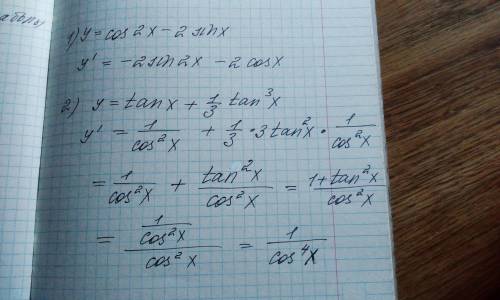 1) y = cos 2x - 2 sin x
y' = -2 sin 2x - 2 cos x
2) y = tan x + 1/3 tan³x
y' = 1/cos²x + 1/3 · 3 tan²x · 1/cos²x
= 1/cos²x + tan²x/cos²x = (1 + tan²x)/cos²x
= (1/cos²x)/cos²x = 1/cos⁴x